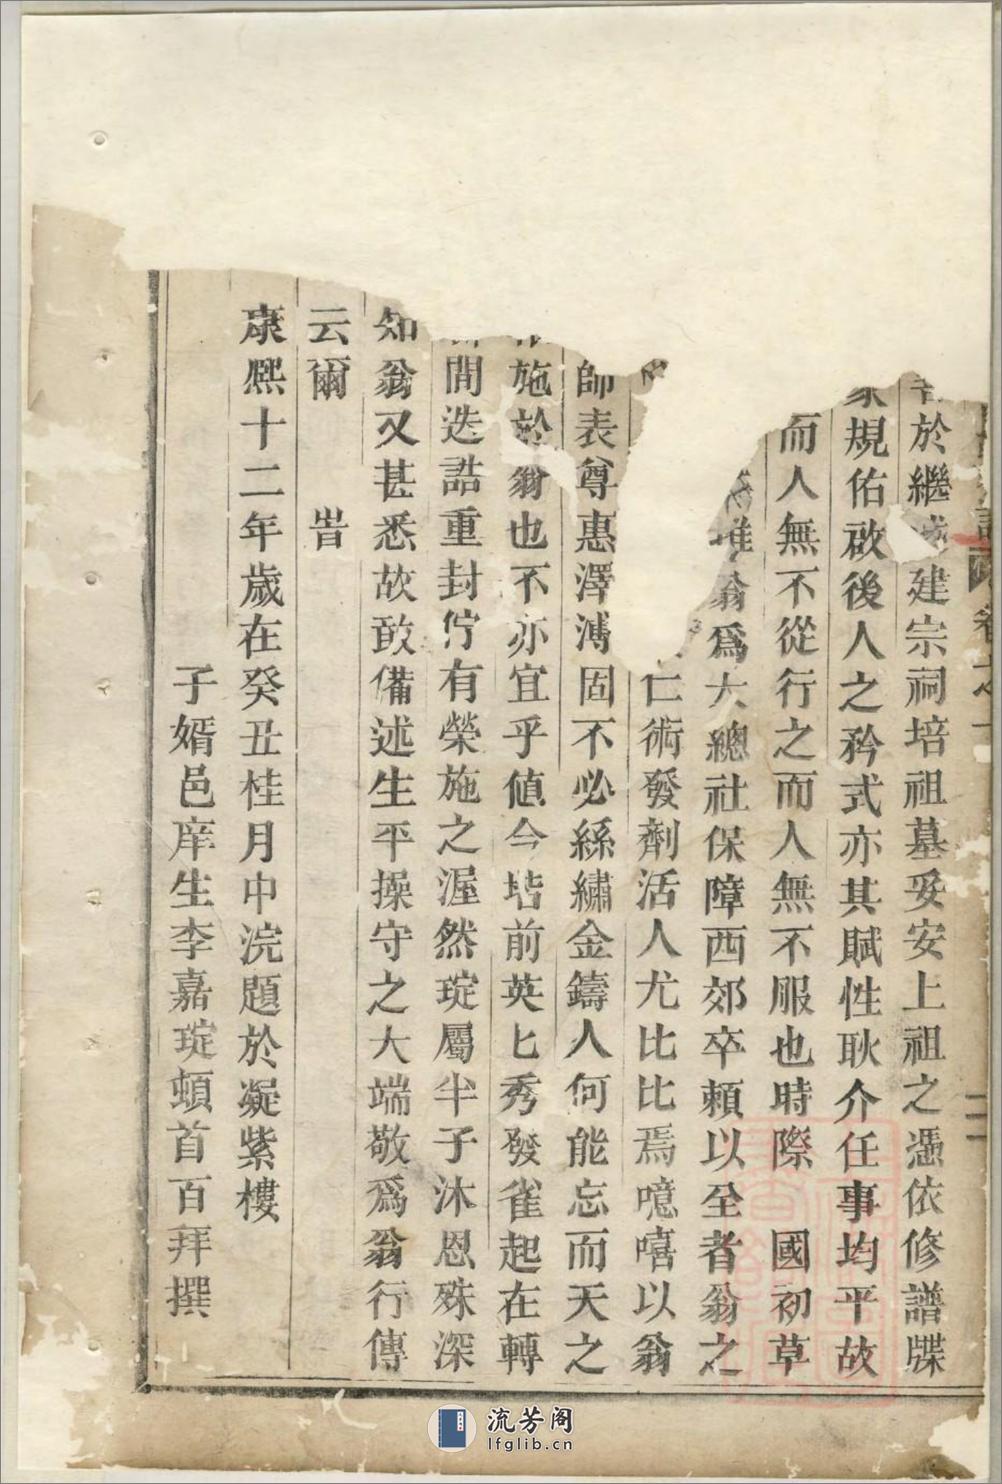 於繼建宗祠培祖墓妥安上祖之憑依修譜牒
家規佑啟後人之矜式亦其賦性耿介任事均平故
而人無不從行之而人無不服也時際 國初草
惟翁爲大總社保障西郊卒賴以全者翁之
仁術發劑活人尤比比焉噫嘻以翁
師表尊惠澤溥固不必絲繡金鑄人何能忘而天之
施於翁也不亦宜乎値今堦前英匕秀發雀起在轉
間迭誥重封佇有榮施之渥然琔屬半子沐恩殊深
知翁又甚悉故敢備述生平操守之大端敬爲翁行傳
云爾 旹
康熙十二年歲在癸丑桂月中浣題於凝紫樓
子婿邑庠生李嘉琔頓首百拜撰
流芳阁
lfglib.cn